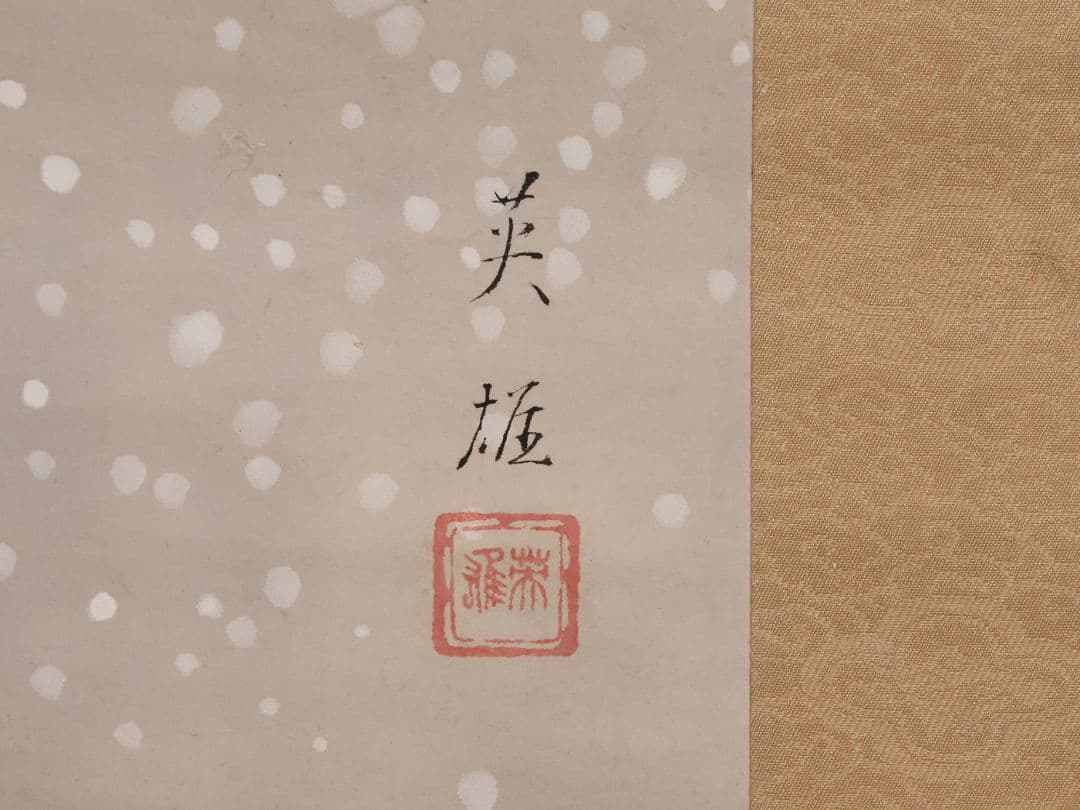 英雄
英雄